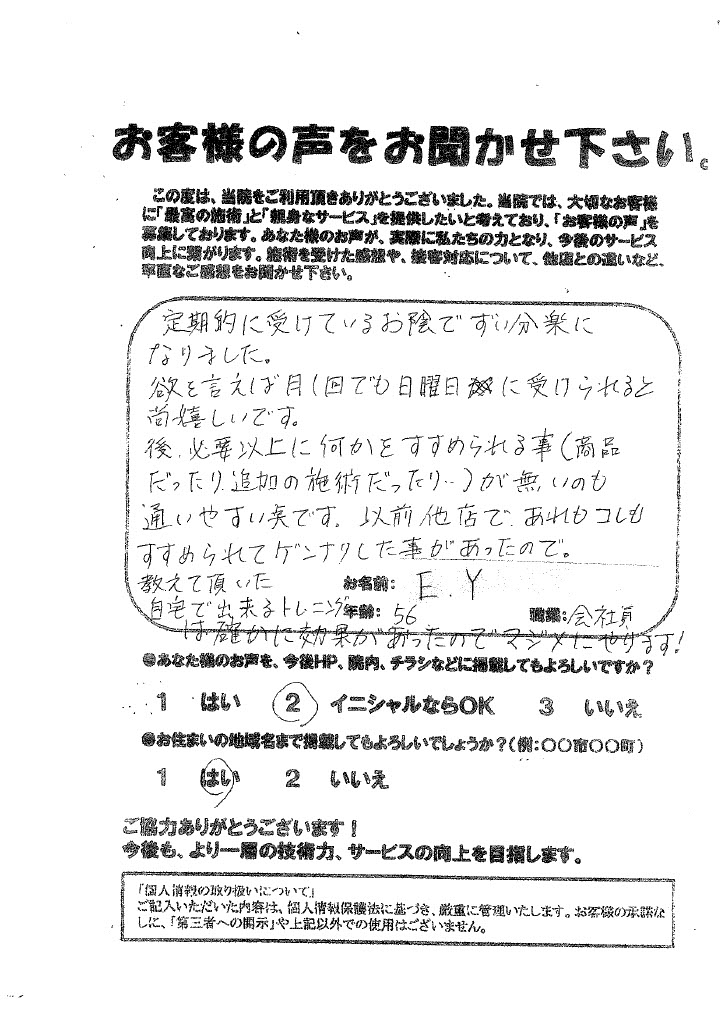 お客様の声をお聞かせ下さい。
この度は、当院をご利用頂きありがとうございました。当院では、大切なお客様
に「最高の施術」と「親身なサービス」を提供したいと考えており、「お客様の声」を
募集しております。あなた様のお声が、実際に私たちの力となり、今後のサービス
向上に繋がります。施術を受けた感想や、接客対応について、他店との違いなど、
率直なご感想をお聞かせ下さい。
定期的に受けているお陰でずい分楽に
なりました。
欲を言えば月1回でも日曜日に受けられると
尚嬉しいです。
後、必要以上に何かをすすめられる事(商品
だったり、追加の施術だったり…)が無いのも
通いやすい点です。以前他店で、あれもコレも
すすめられてゲンナリした事があったので。
教えて頂いた
お名前: E.Y
自宅で出来るトレーニング
年齢: 56 職業: 会社員
は確かに効果があったのでマジメにやります!
●あなた様のお声を、今後HP、院内、チラシなどに掲載してもよろしいですか?
1 はい 2 イニシャルならOK 3 いいえ
●お住まいの地域名まで掲載してもよろしいでしょうか?(例:〇〇市〇〇町)
1 はい 2 いいえ
ご協力ありがとうございます!
今後も、より一層の技術力、サービスの向上を目指します。
「個人情報の取り扱いについて」
ご記入いただいた内容は、個人情報保護法に基づき、厳重に管理いたします。お客様の承諾な
しに、「第三者への開示」や上記以外での使用はございません。